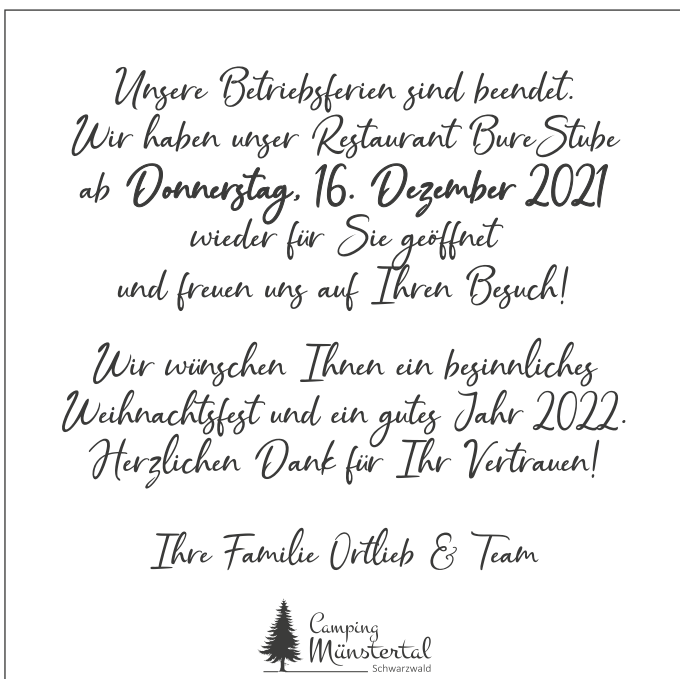 Unsere Betriebsferien sind beendet.
Wir haben unser Restaurant BureStube
ab Donnerstag, 16. Dezember 2021
wieder für Sie geöffnet
und freuen uns auf Ihren Besuch!
Wir wünschen Ihnen ein besinnliches
Weihnachtsfest und ein gutes Jahr 2022.
Herzlichen Dank für Ihr Vertrauen!
Ihre Familie Ortlieb & Team
Camping
Münstertal
Schwarzwald